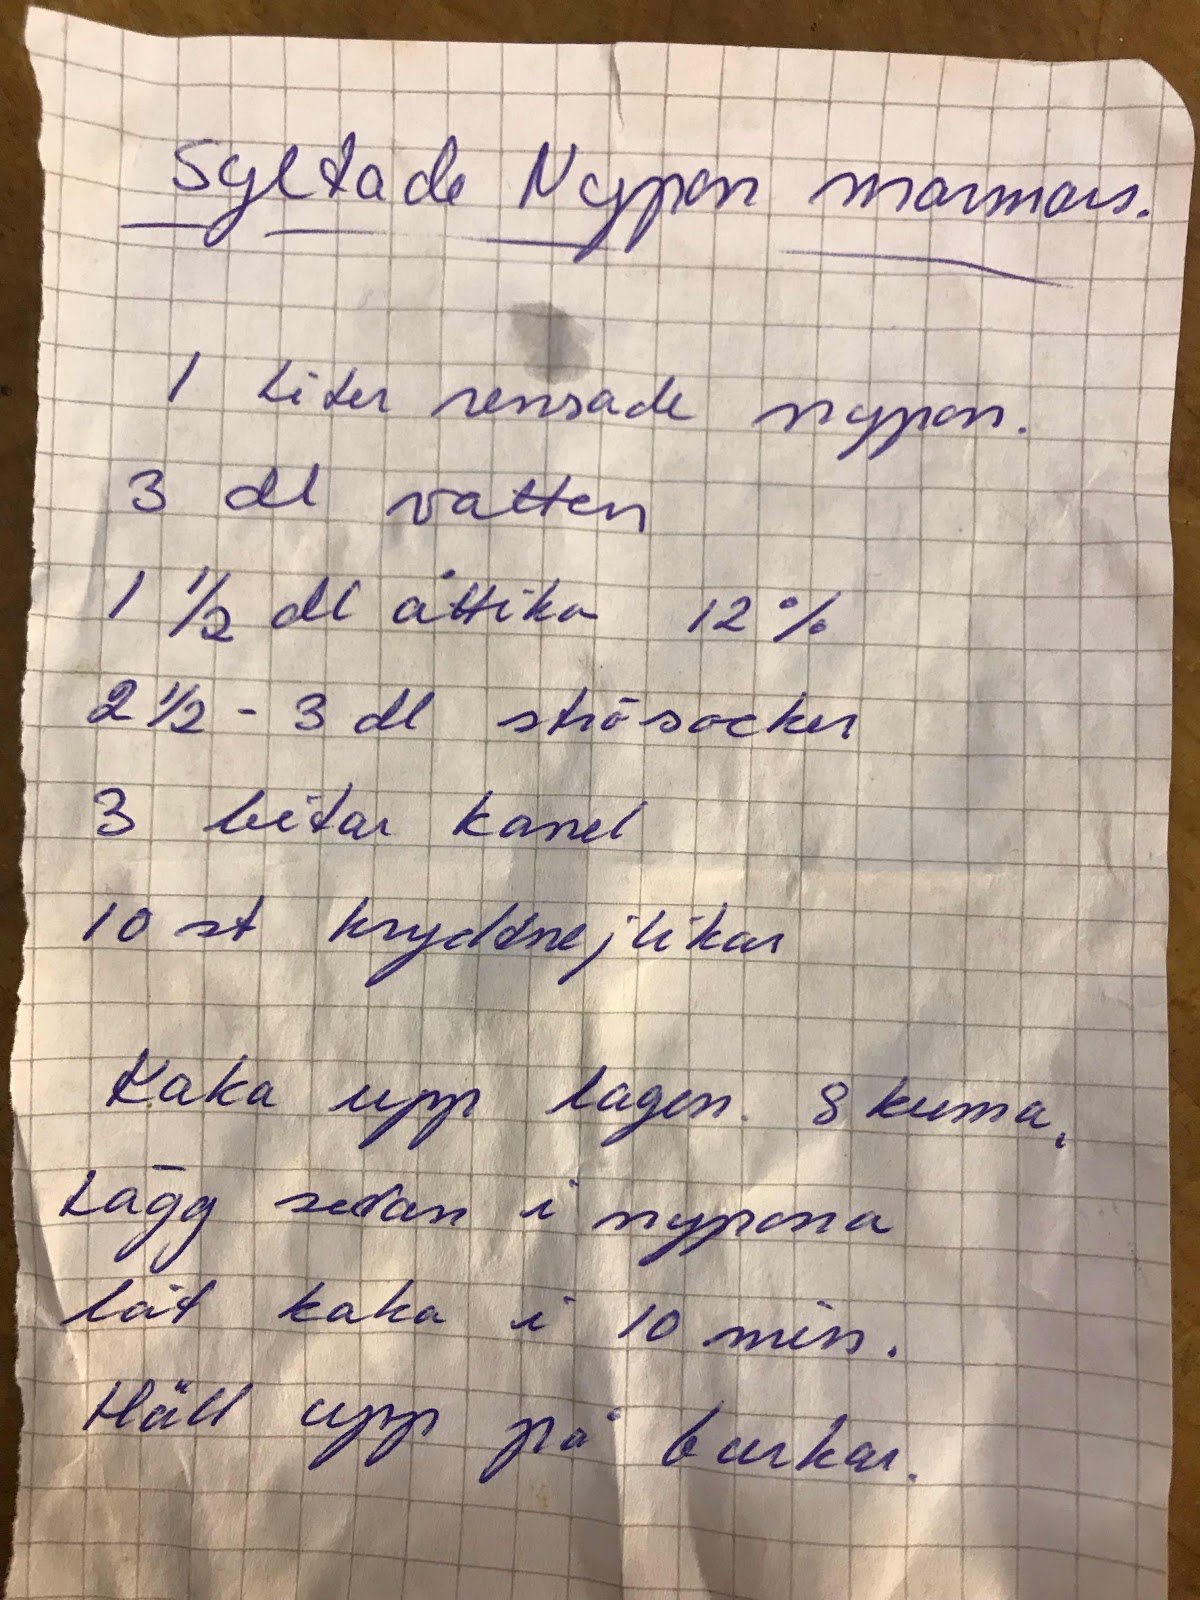 Syltade Nypon mormors.
1 Liter rensade nypon.
3 dl vatten
1 1/2 dl ättika 12%
2 1/2 - 3 dl strösocker
3 bitar kanel
10 st kryddnejlikar
Koka upp lagen. Skuma.
Lägg sedan i nypona
låt koka i 10 min.
Häll upp på burkar.